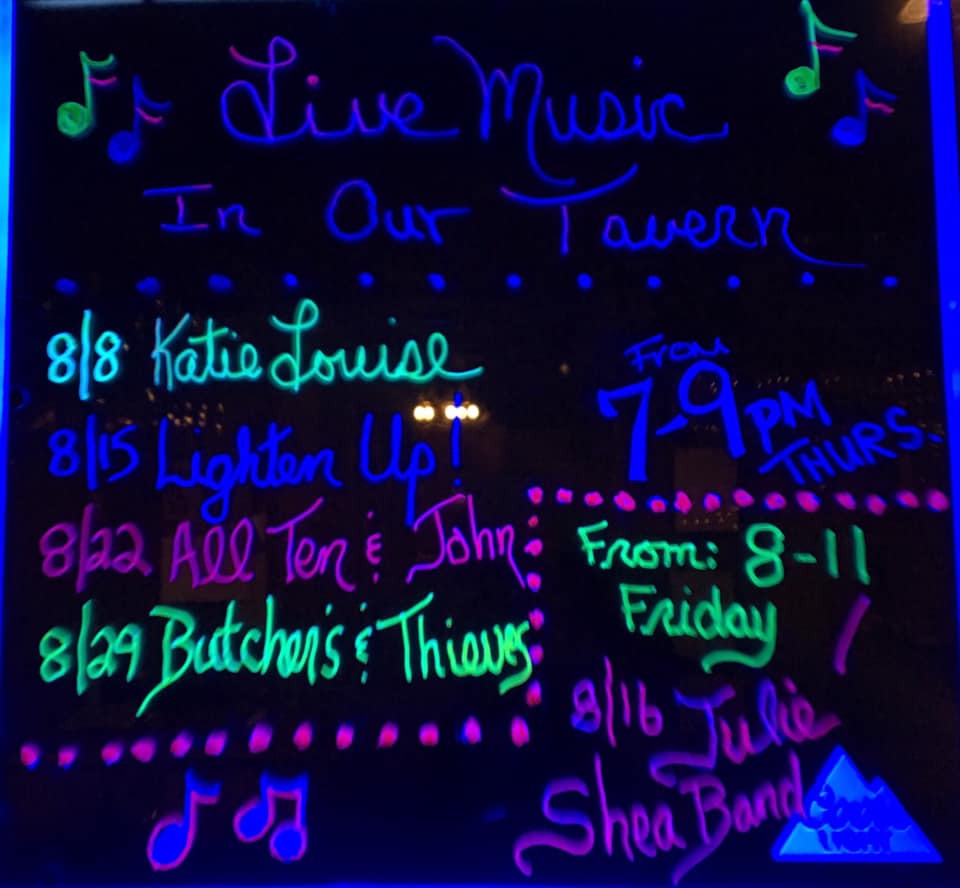 Live Music
In Our Tavern
8/8 Katie Louise
8/15 Lighten Up!
8/22 All Ten & John
8/29 Butcher's & Thieves
From
7-9 PM
THURS.
From: 8-11
Friday
8/16 Julie
Shea Band